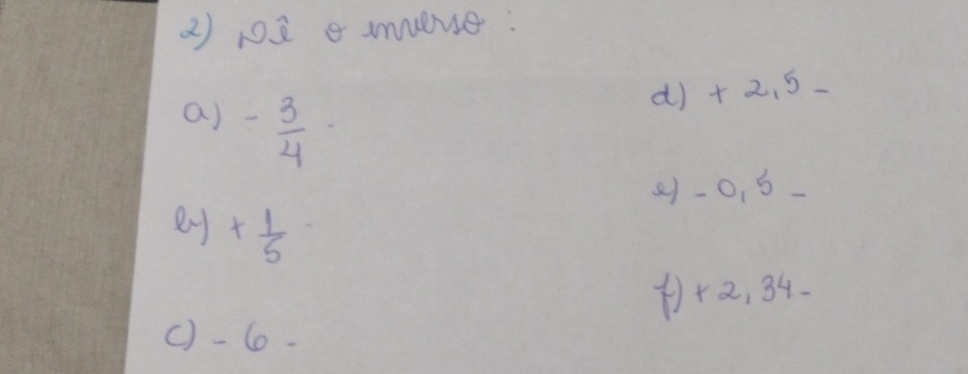 2) Dê o inverso:
a) - 3/4 -
b) + 1/5 -
c) - 6 -
d) + 2,5 -
e) - 0,5 -
f) + 2,34 -